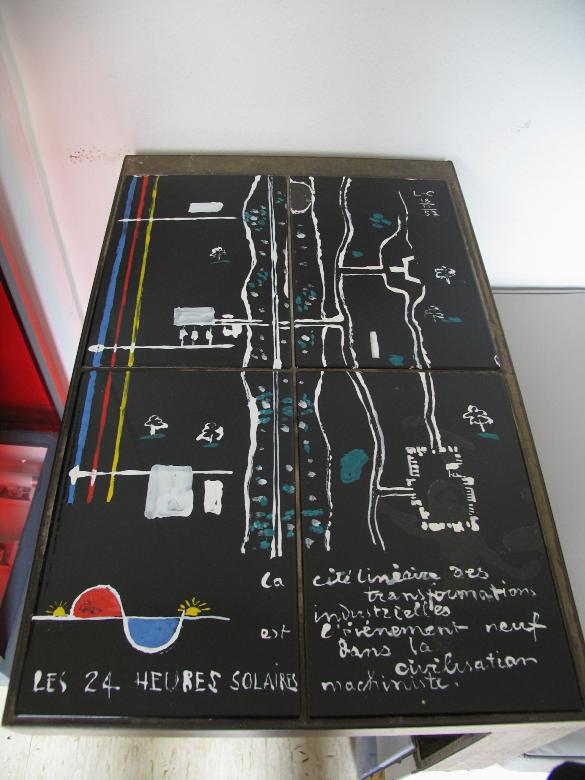 La cité linéaire des
transformations
industrielles
est l'événement neuf
dans la
civilisation
machiniste.
LES 24 HEURES SOLAIRES